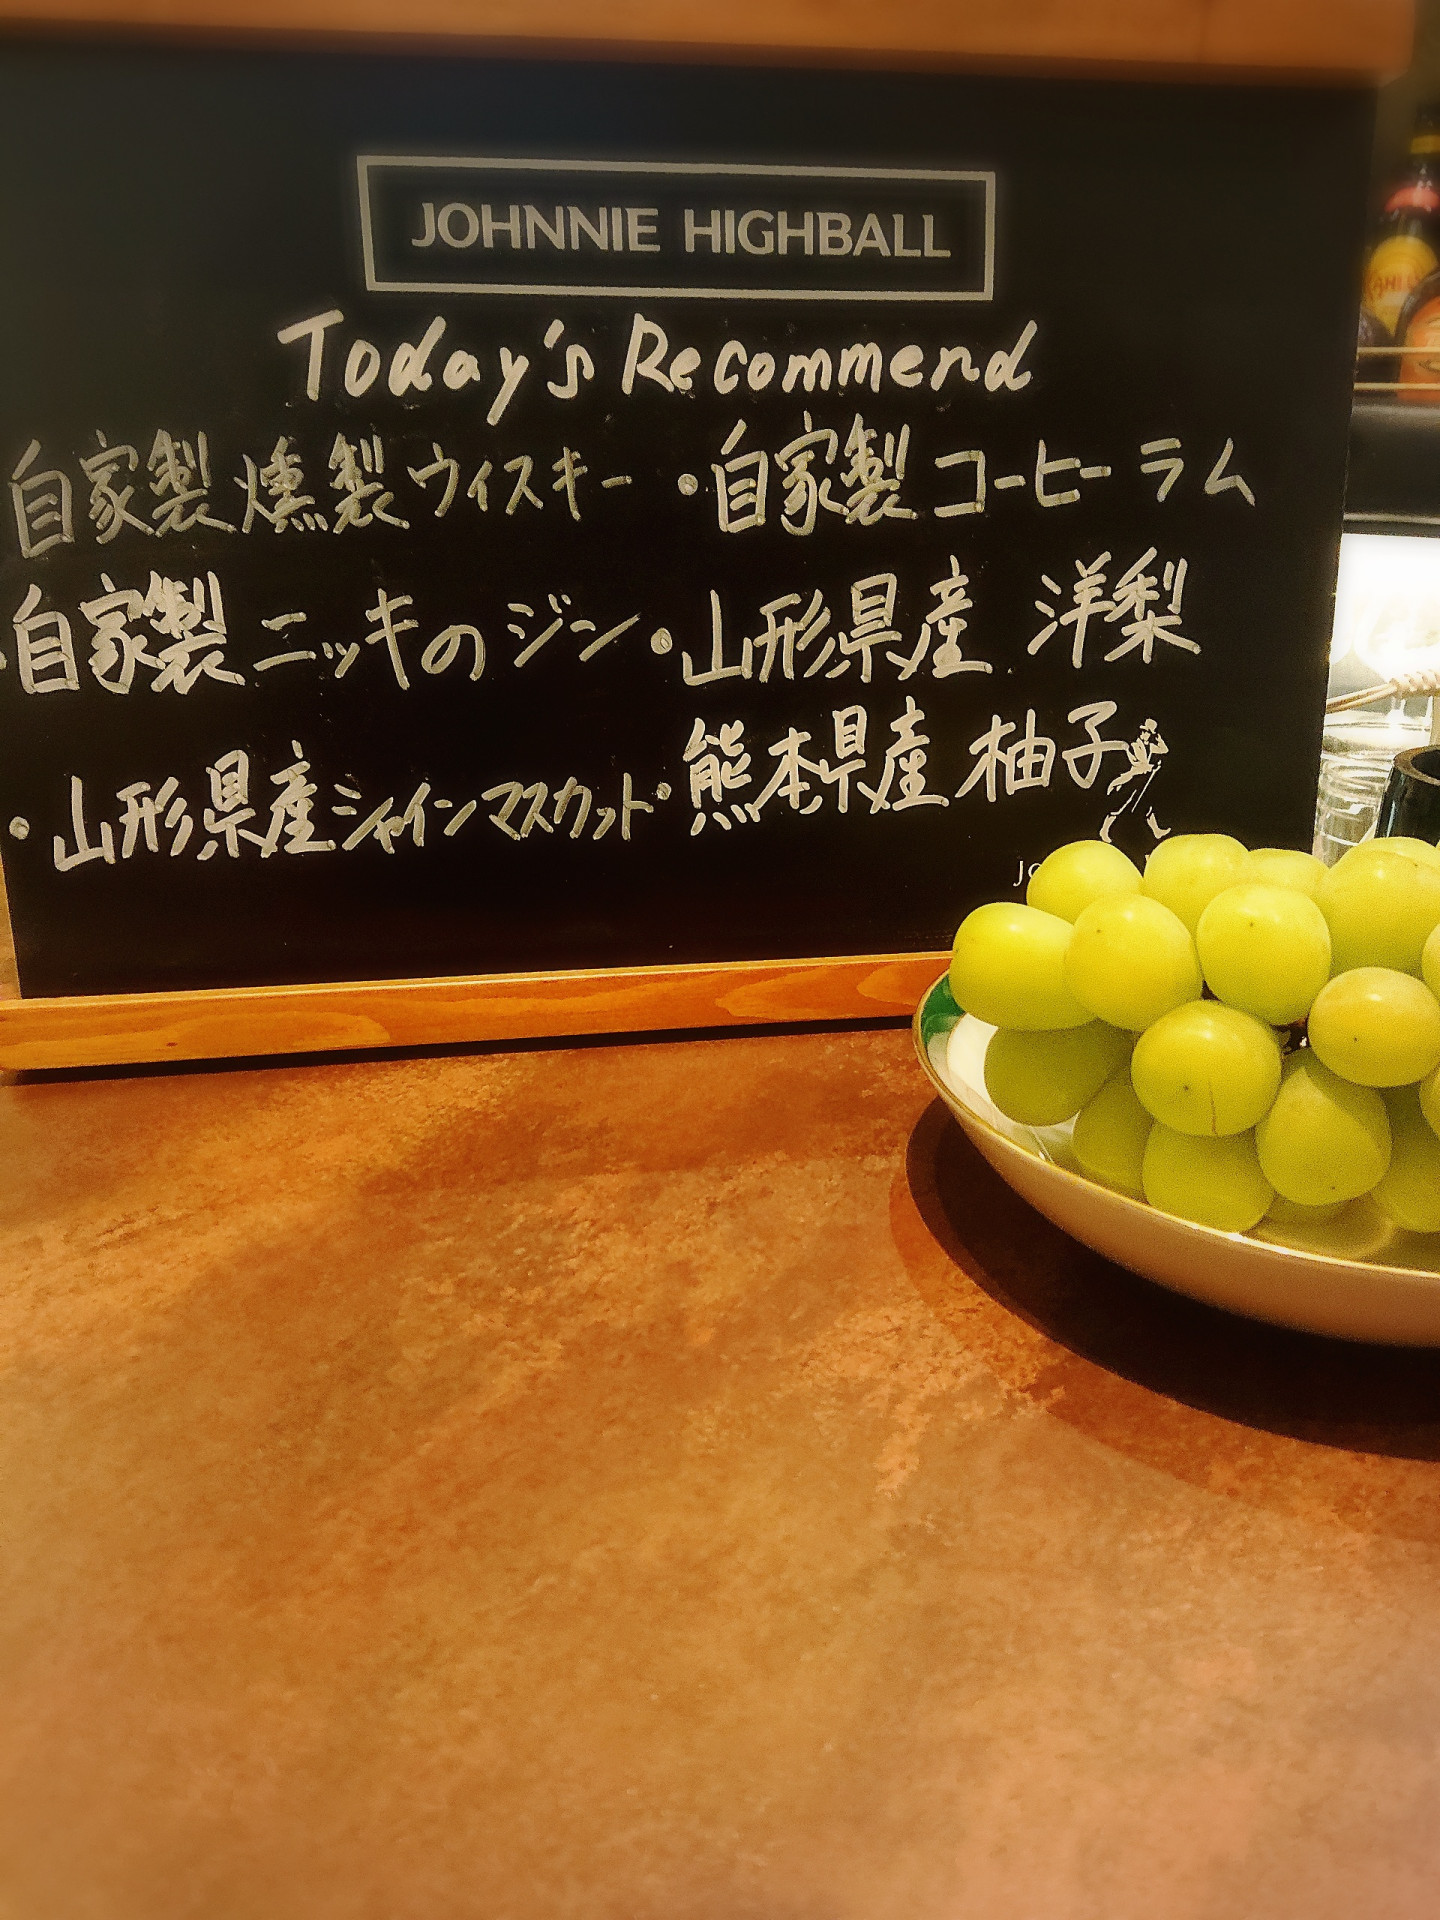 JOHNNIE HIGHBALL
Today's Recommend
自家製燻製ウィスキー ・自家製コーヒーラム
・自家製ニッキのジン ・山形県産 洋梨
・山形県産シャインマスカット ・熊本県産 柚子